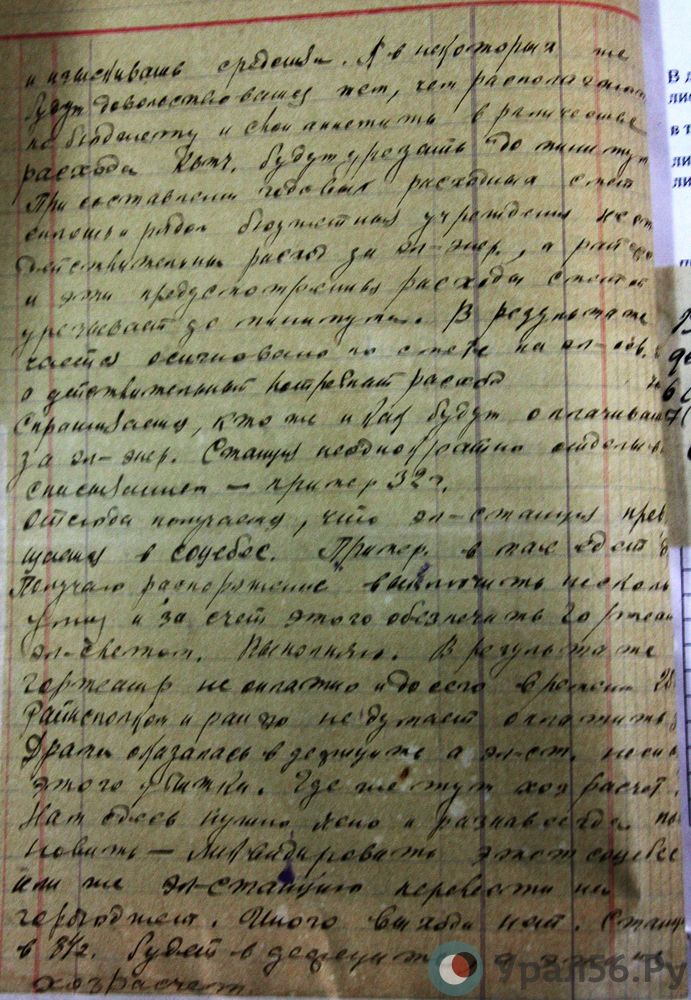 и изыскивать средства. А в некоторых же
будут довольствоваться тем, чем располагают
по бюджету и свои лимиты в
расхода будут урезать до миниму
При составлении годовых расходных смет
сплошь и рядом бюджетные учреждения не
действительный расход за эл-энер., а рай
и эти предусмотренные расходы сметой
урезывает до минимума. В результате
чается ассигновано по смете на эл-осв.
а действительный расход
Спрашивается, кто же и как будут оплачивать
за эл-энер. Станция неоднократно отделыв
списыванием — пример 32 г.
Отсюда получается, что эл-станция прев
щается в соцобес. Пример. в мае едет
Получаю распоряжение выключить несколь
улиц и за счет этого обеспечить Гортеатр
эл-светом. Выполняю. В результате
гортеатр не оплатил и до сего времени
Райисполком и не думает оплатить
Драма оказалась в дефиците а эл-ст.
этого убытки. Где же тут хоз расчет.
Нам здесь нужно ясно и раз навсегда
новить — Ликвидировать этот соцобес
или же эл-станцию перевести на
горбюджет. Иного выхода нет. Станц
в будет в дефиците а
хозрасчет.
Урал56.Ру
В д
лис
в т
ли
ли